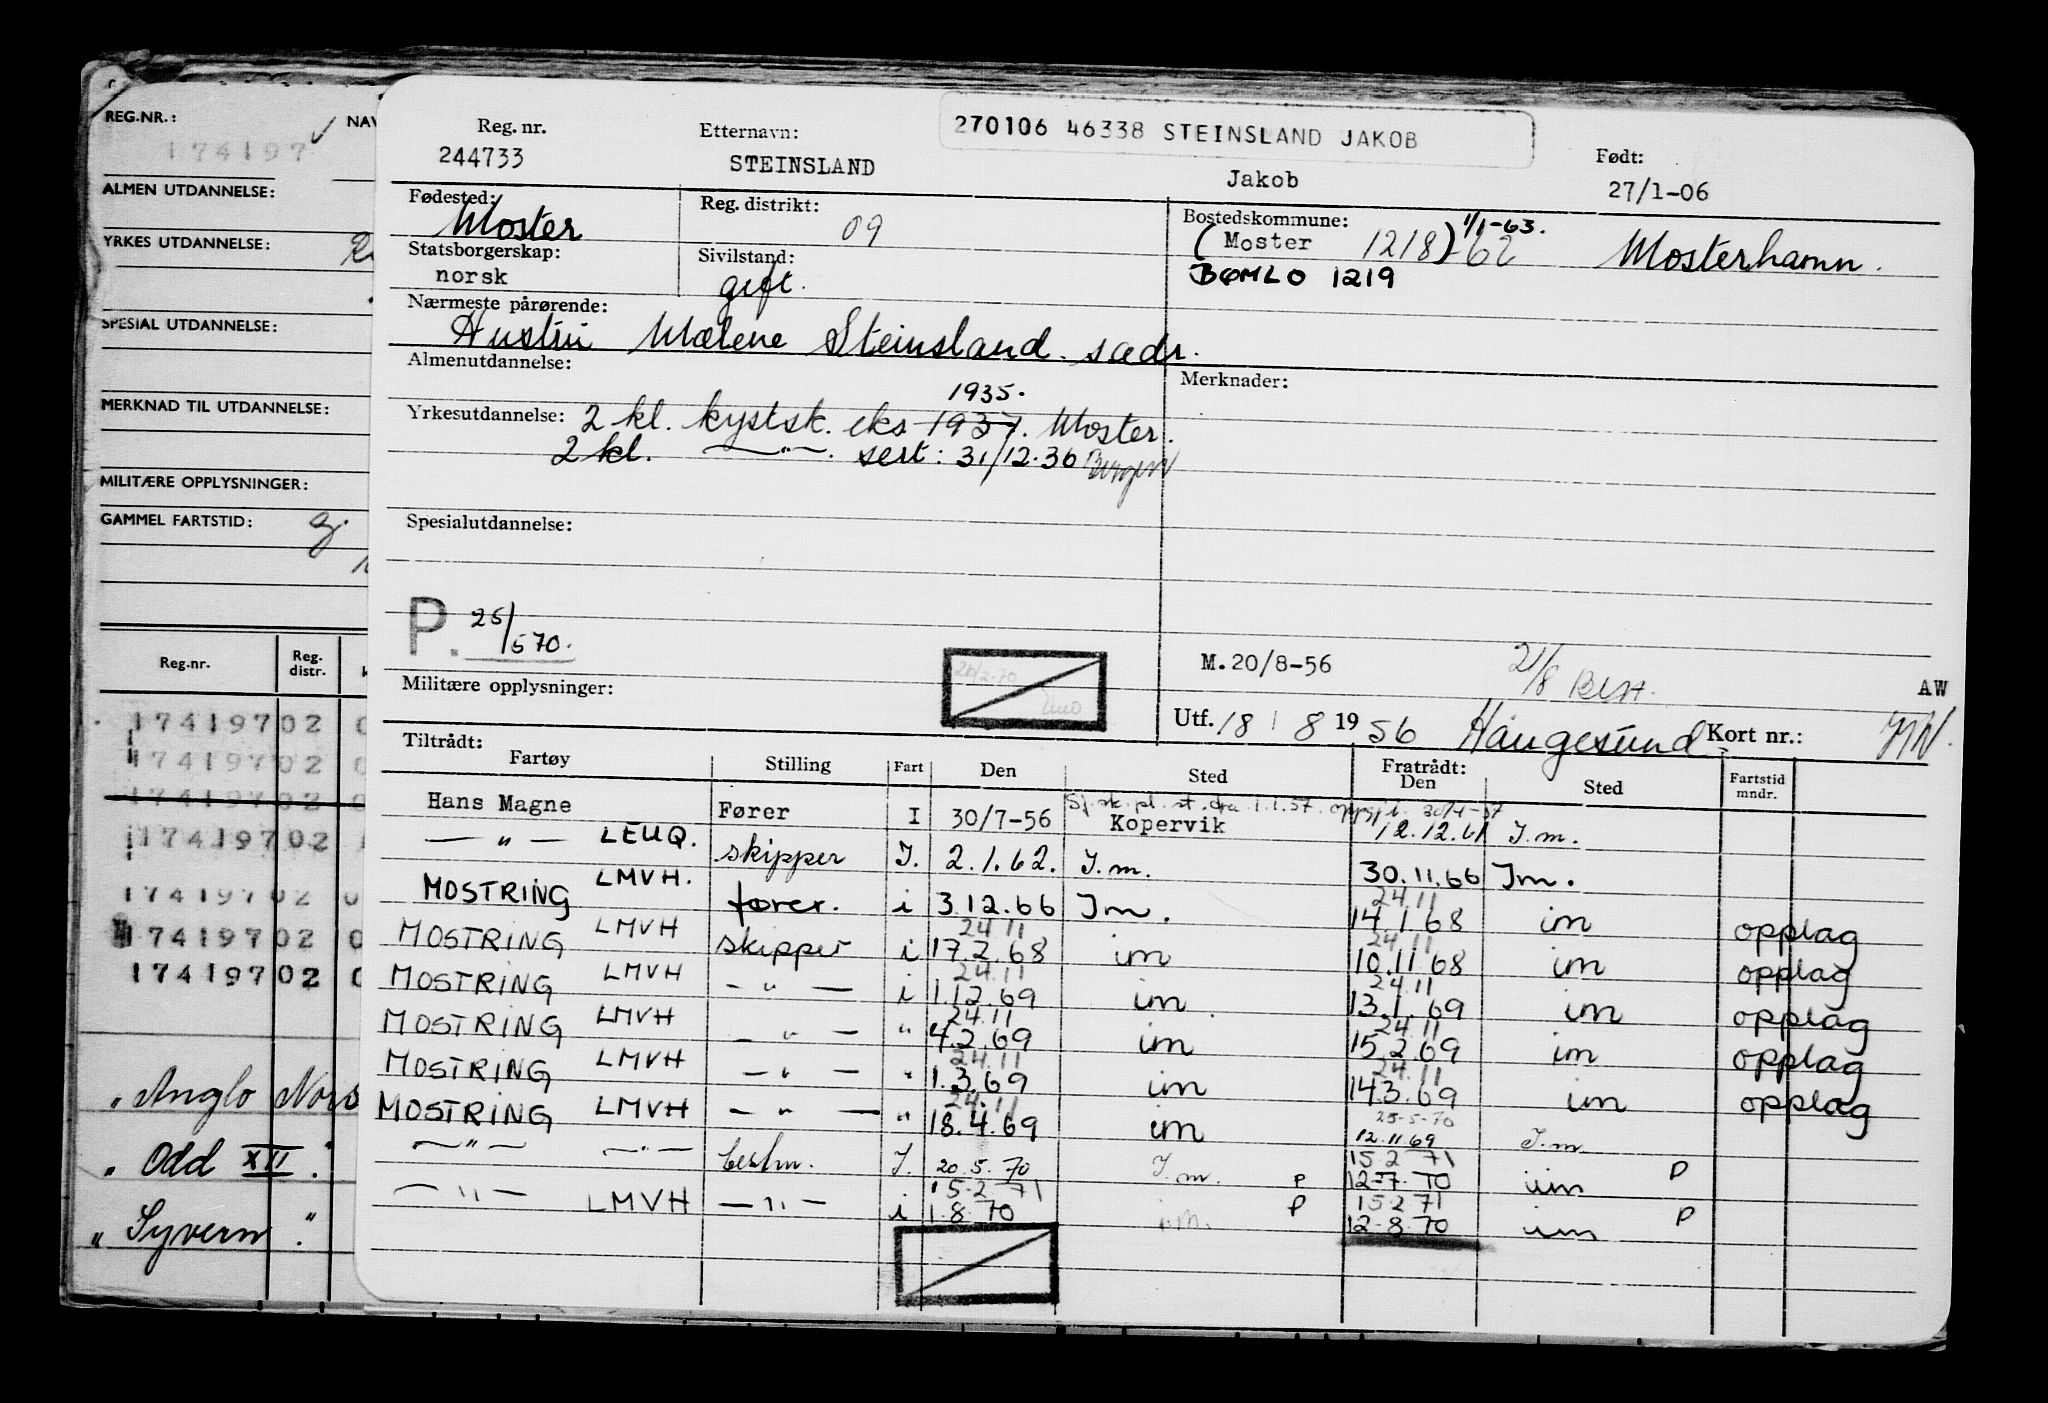 REG.NR.: NAV
174197
ALMEN UTDANNELSE:
YRKES UTDANNELSE:
SPESIAL UTDANNELSE:
MERKNAD TIL UTDANNELSE:
MILITÆRE OPPLYSNINGER:
GAMMEL FARTSTID:
Reg.nr. Reg. distr.
17419702
17419702
17419702
17419702
17419702
17419702
17419702
" Anglo Nors
" Odd XII "
" Syvern "
270106 46338 STEINSLAND JAKOB
Reg. nr. Etternavn: Født:
244733 STEINSLAND Jakob 27/1-06
Fødested: Reg. distrikt: Bostedskommune:
Moster 09 (Moster 1218) 62 1/1-63. Mosterhamn.
Statsborgerskap: Sivilstand:
norsk gift. BØMLO 1219
Nærmeste pårørende:
Hustru Malene Steinsland. sadr.
Almenutdannelse: Merknader:
1935.
Yrkesutdannelse: 2 kl. kystsk. eks 1937. Moster.
2 kl. —"—. sert: 31/12.36 Bergen
Spesialutdannelse:
P. 25/570.
M.20/8-56 21/8 Best. AW
Militære opplysninger:
Utf. 18/8 1956 Haugesund Kort nr.:
Tiltrådt: Fratrådt:
Fartøy Stilling Fart Den Sted Den Sted Fartstid mndr.
Sj. sk. pl. st. fra 1.1.57. oppgj. 30/4-57
Hans Magne Fører I 30/7-56 Kopervik 12.12.61 I.m.
—"— LEUQ. skipper I. 2.1.62. I.m. 30.11.66 Im.
MOSTRING LMVH. fører. i 3.12.66 Im. 24.11 14.1.68 im opplag
MOSTRING LMVH skipper i 24.11 17.2.68 im 24.11 10.11.68 im opplag
MOSTRING LMVH —"— i 24.11 1.12.69 im 24.11 13.1.69 im opplag
MOSTRING LMVH —"— " 24.11 4.2.69 im 24.11 15.2.69 im opplag
MOSTRING LMVH —"— " 24.11 1.3.69 im 24.11 14.3.69 im opplag
MOSTRING LMVH —"— " 24.11 18.4.69 im 25-5-70 12.11.69 I.m.
—"— —"— bestm. I. 20.5.70 I.m. P 15.2 71 12.7.70 im P
—"— LMVH —"— i 15.2 71 1.8.70 im. P 15.2 71 12.8.70 im P